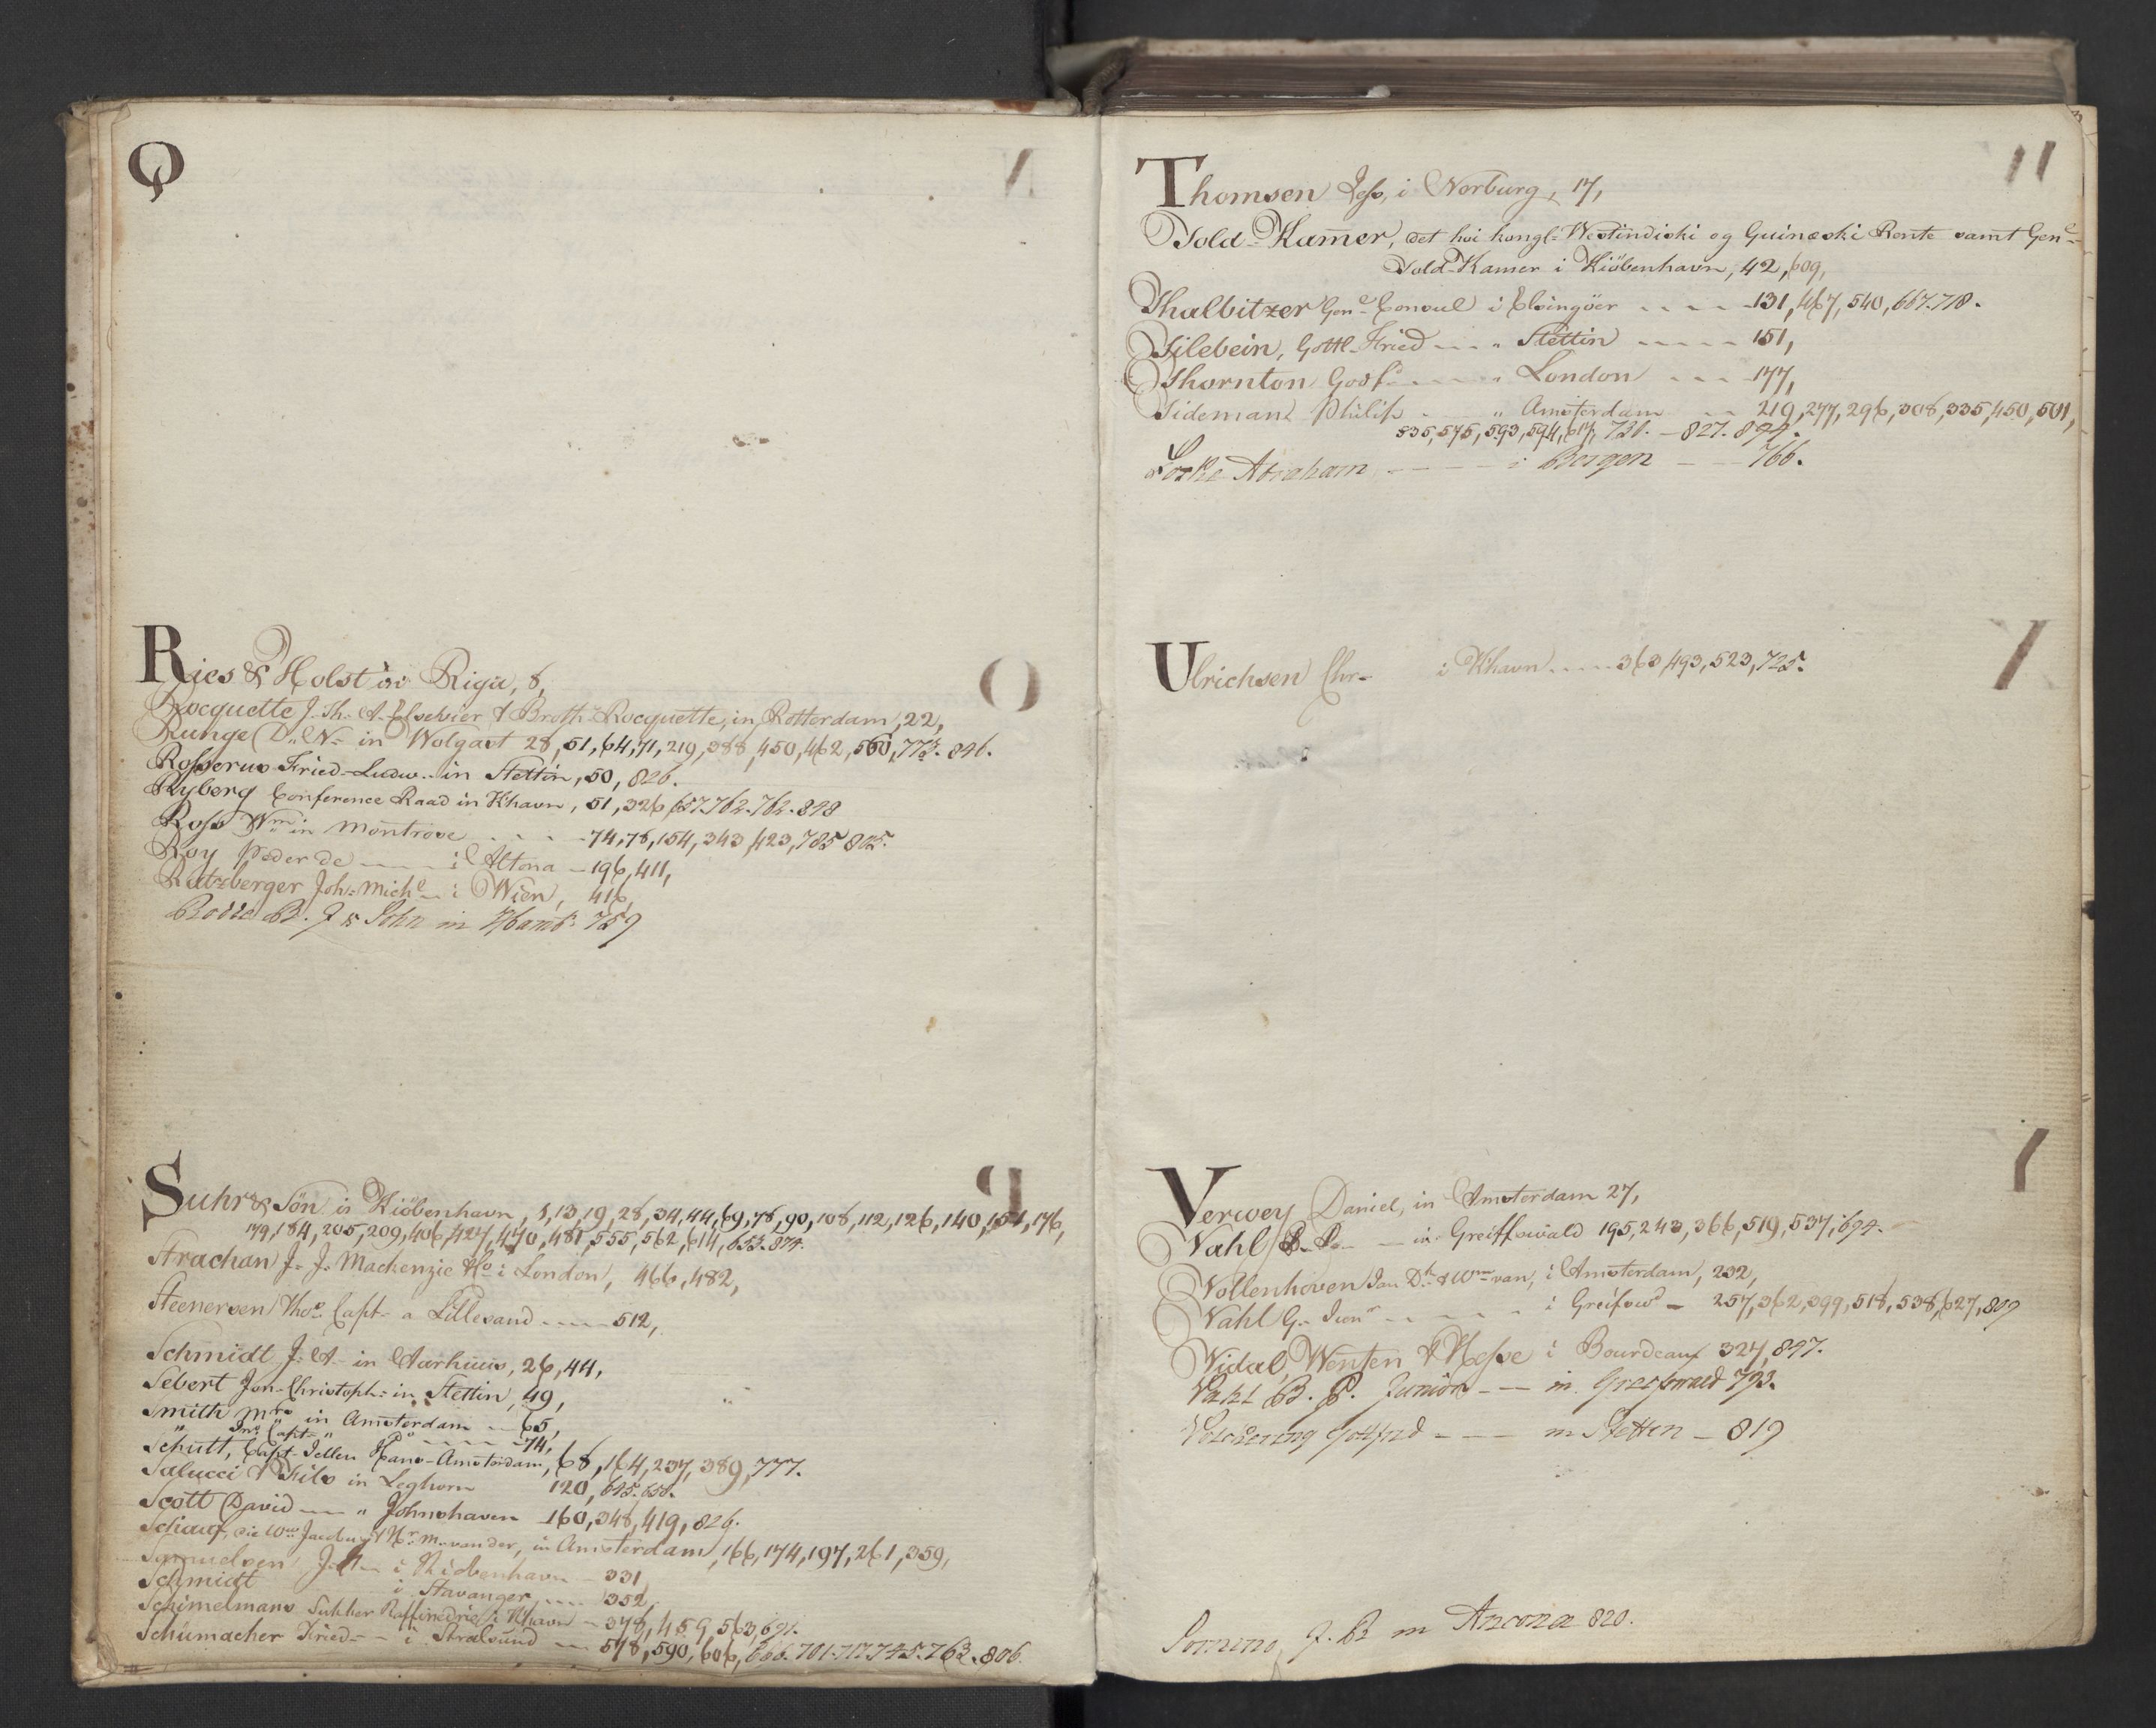 Q
Ries & Holst in Riga, 8,
Rocquette J. Th. A. Elsevier & Broth. Rocquette, in Rotterdam, 22,
Runge D. N. in Wolgast 28, 51, 64, 71, 219, 388, 450, 462, 560, 773. 846.
Rosserus Fried-Ludw. in Stettin, 50, 826.
Ryberg Conference Raad in Khavn, 51, 326, 657. 762. 762. 898
Ross Wm in Montrose 74, 78, 154, 343, 423, 785 805.
Roy Peder de i Altona 196, 411,
Ratzberger Joh: Michl i Wien, 416,
Rodde B. J & Sohn in Hamb. 759
Suhr & Sön in Kiöbenhavn, 1, 13, 19, 28, 34, 44, 69, 78, 90, 108, 112, 126, 140, 151, 176,
179, 184, 205, 209, 406, 427, 470, 481, 555, 562, 614, 653. 874.
Strachan J. J. Mackenzie & Co i London, 466, 482,
Steenersen Thos Capt a Lillesand 512,
Schmidt J. A. in Aarhuus, 26, 44,
Sebert Jon-Christoph: in Stettin, 49,
Smith Mrs in Amsterdam 65,
" Capt " Do 74,
Schutt, Capt. Jellen Hans-Amsterdam, 68, 164, 237, 389, 777.
Salucci & Filo in Leghorn 120, 645. 658.
Scott David " Johnshaven 160, 348, 419, 826.
Schauf, die Wwe Jacobus & Hr. M. van der, in Amsterdam, 166, 174, 197, 261, 359,
Samuelsen J. N. i Kiöbenhavn 331,
Schmidt i Stavanger 352,
Schimelmans Sukker Raffinedrie i Khavn 378, 459, 563, 691.
Schumacher Fried i Stralsund 578, 590, 606, 666. 701. 717. 745. 763. 806.
Thomsen Jess, i Norburg, 17,
Told-Kamer, det høi kongl: Westindiski og Guinæski Rente samt Genl
Told-Kamer i Kiöbenhavn, 42, 609,
Thalbitzer Genl Consul i Elsingöer 131, 467, 540, 667. 718.
Tilebein, Gottl-Fried " Stettin 151,
Thornton Godf " London 177,
Tideman Philip " Amsterdam 219, 277, 296, 308, 335, 450, 501,
535, 575, 593, 594, 617, 730. 827. 894.
Torke Abraham i Bergen 766.
Ulrichsen Chr. i Khavn 363, 493, 523, 725.
Verwey Daniel, in Amsterdam 27,
Vahl B. P. in Greiffswald 195, 243, 366, 519, 537, 694.
Vollenhoven Jan Dk & Wm van, i Amsterdam, 232,
Vahl G. Junr i Greifswd 257, 362, 399, 518, 538, 627, 809
Vidal, Wenten & Hesse i Bourdeaux 327, 897.
Vahl B. P. Junior in Greifswald 793.
Velchering Gottfrd in Stettin 819
J. B in Ancona 820.